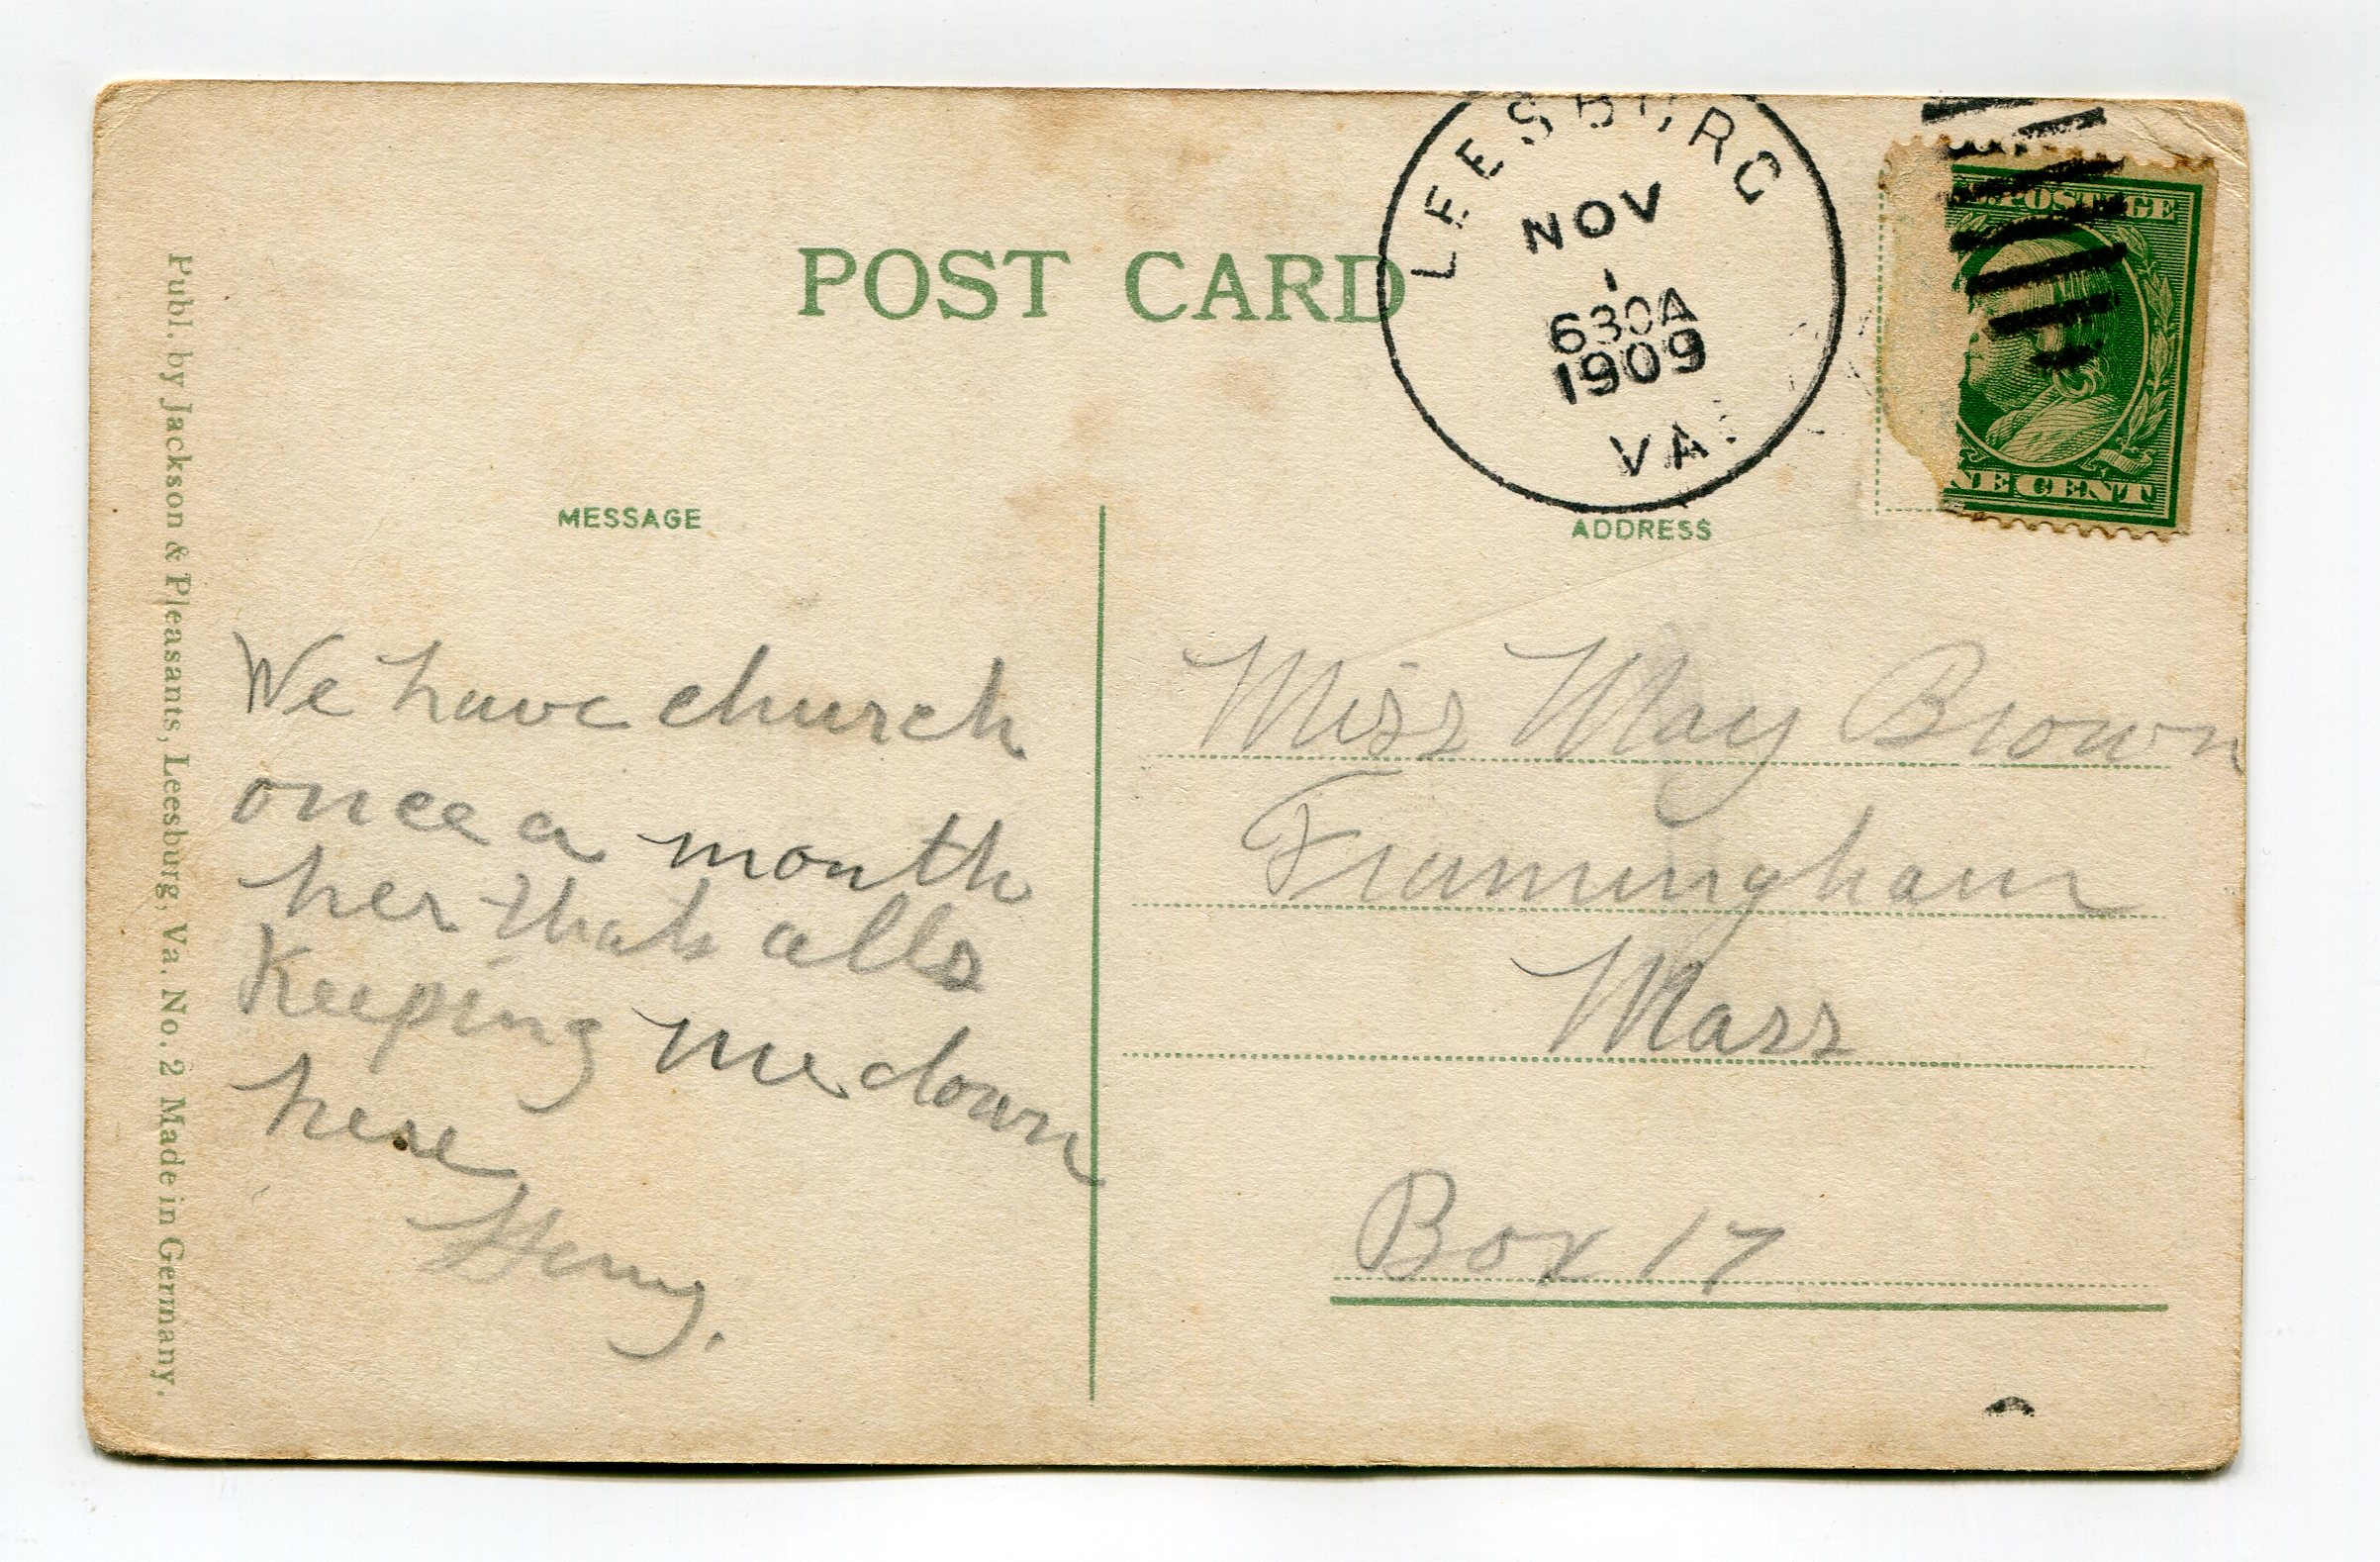 POST CARD
LEESBURG
NOV
1
630A
1909
VA.
POSTAGE
NE CENT
MESSAGE
ADDRESS
We have church
once a month
her thats alls
Keeping me down
here
Henry.
Miss May Brown
Framingham
Mass
Box 17
Publ. by Jackson & Pleasants, Leesburg, Va. No. 2 Made in Germany.